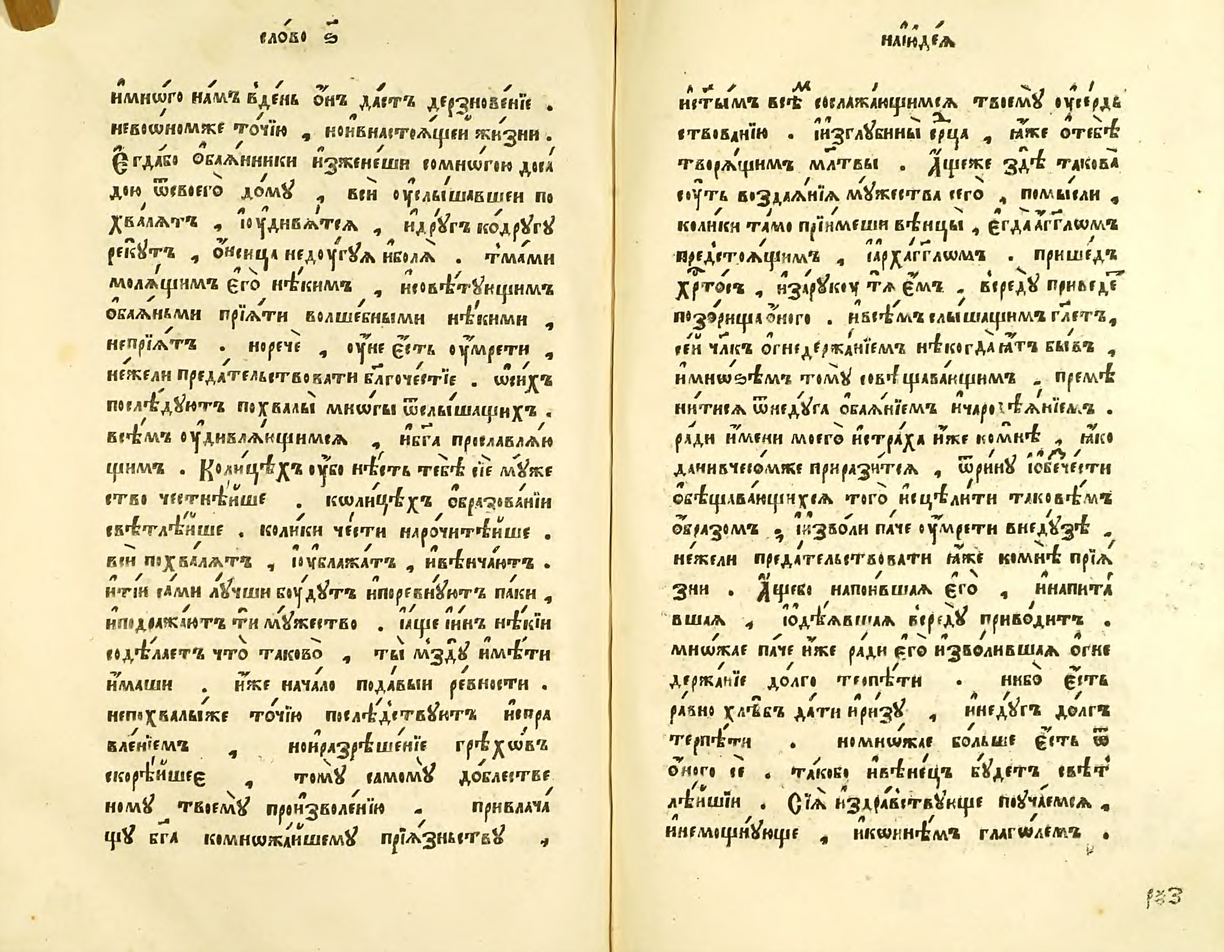 сло́во ѕ҃
и҆мно́го на́мъ вде́нь ѻ҆́нъ да́стъ дерзнове́нїе .
невоѡ́номже то́чїю , нои҆внастоѧ́щей жи́зни .
Є҆гда́бо ѻ҆баѧ́нники и҆зжене́ши сомно́гою доса
до́ю ѿсвоегѡ̀ до́мꙋ , всѝ оу҆слы́шавшеи по
хва́лѧтъ , ї҆оу҆дивѧ́тсѧ , и҆дрꙋ́гъ ко́дрꙋгꙋ
рекꙋ́тъ , ѻ҆́нсица недоу́гꙋѧ и҆болѧ̀ . тма́ми
молѧ́щимъ є҆го̀ нѣ́кимъ , и҆совѣ́тꙋющимъ
ѻ҆баѧ́ньми прїѧ́ти волше́бными нѣ́кими ,
непрїѧ́тъ . норечѐ , оу҆́не є҆́сть оу҆мре́ти ,
не́жели преда́тельствовати бл҃гоче́стїе . ѡ҆си́хъ
послѣ́дꙋютъ похвалы̀ мно́ги ѿслы́шащихъ .
всѣ́мъ оу҆дивлѧ́ющимсѧ , и҆бг҃а прославлѧ́ю
щимъ . Коли́цѣхъ оу҆̀бо нѣ́сть тебѣ̀ сїѐ мꙋ́же
ство честнѣ́йше . кѡли́цѣхъ ѻ҆бразова́нїи
свѣтлѣ́йше . коли́ки че́сти нарочитѣ́йше .
всѝ похва́лѧтъ , ї҆оу҆блажа́тъ , и҆вѣнча́ютъ .
и҆ті́и са́ми лꙋ́чши бꙋ́дꙋтъ и҆поревнꙋ́ютъ па́ки ,
и҆подража́ютъ ти мꙋ́жество . ї҆а҆́ще и҆и҆́нъ нѣ́кїи
содѣ́лаетъ что̀ таково̀ , ты̀ мздꙋ̀ и҆мѣ́ти
и҆́маши . и҆́же нача́ло пода́выи ре́вности .
непохвалы́же то́чїю послѣ́дствꙋютъ и҆спра
вле́нїемъ , нои҆разрѣше́нїе грѣхѡ́въ
скорѣ́йшеє , томꙋ̀ самомꙋ̀ до́блестве
номꙋ твоемꙋ̀ произволе́нїю . привлача́
щꙋ бг҃а комножа́йшемꙋ прїѧ́зньствꙋ ,
наїꙋде́ѧ
и҆сты́мъ всѣ́м сослажа́ющимсѧ твоемꙋ̀ оу҆се́рдь
ствованїю . и҆и҆зглꙋбины̀ се́рца , ꙗ҆́же ѻ҆тебѣ̀
творѧ́щимъ мл҃твы . А҆́щеже здѣ̀ такова̀
сꙋ́ть воздаѧ́нїѧ мꙋ́жества сегѡ̀ , помы́сли ,
коли́ки та́мо прїи́меши вѣнцы̀ , є҆гда̀ а҆́гг҃лѡмъ
предстоѧ́щимъ , ї҆а҆рха́гг҃лѡмъ . прише́дъ
хр҇то́съ , и҆зарꙋ́кꙋ тѧ̀ є҆́мъ . всредꙋ̀ приведе́т
позо́рища ѻ҆́ного . и҆всѣ́мъ слы́шащимъ гл҃етъ ,
се́и чл҃къ ѻ҆гнедержа́нїемъ нѣ́когда ꙗ҆́тъ бы́въ ,
и҆мно́ѕѣмъ томꙋ̀ совѣщава́ющимъ . премѣ
ни́тисѧ ѿнедꙋ́га ѻ҆баѧ́нїемъ и҆чародѣѧ́нїемъ .
ра́ди и҆́мени моегѡ̀ и҆стра́ха и҆́же комнѣ̀ , ꙗ҆́ко
да́нивчесо́мже прирази́тсѧ , ѿри́нꙋ ї҆ѻ҆бече́сти
ѻ҆бѣщава́ющихсѧ того̀ и҆сцѣли́ти таковѣ́мъ
ѻ҆́бразомъ , и҆и҆зво́ли па́че оу҆мре́ти внедꙋ́зѣ ,
не́жели преда́тельствовати ꙗ҆́же комнѣ̀ прїѧ́
зни . А҆́щебо напои́вшаѧ є҆го̀ , и҆напита́
вшаѧ , ї҆ѻ҆дѣ́ѧвшаѧ всредꙋ̀ приво́дитъ .
мно́жае па́че и҆́же ра́ди є҆го̀ и҆зво́лившаѧ ѻ҆гне
держа́нїе до́лго терпѣ́ти . ни́бо є҆́сть
равно̀ хлѣ́бъ да́ти и҆ри́зꙋ , и҆недꙋ́гъ до́лгъ
терпѣ́ти . номно́жае бо́льше є҆́сть ѿ
ѻ҆́ного сѐ . та́кобо и҆вѣне́цъ бꙋ́детъ свѣт
лѣ́йшіи . Сїѧ̀ и҆здра́вствꙋюще поꙋча́емсѧ ,
и҆немощнꙋ́юще , и҆кои҆нѣ́мъ глаго́лемъ .